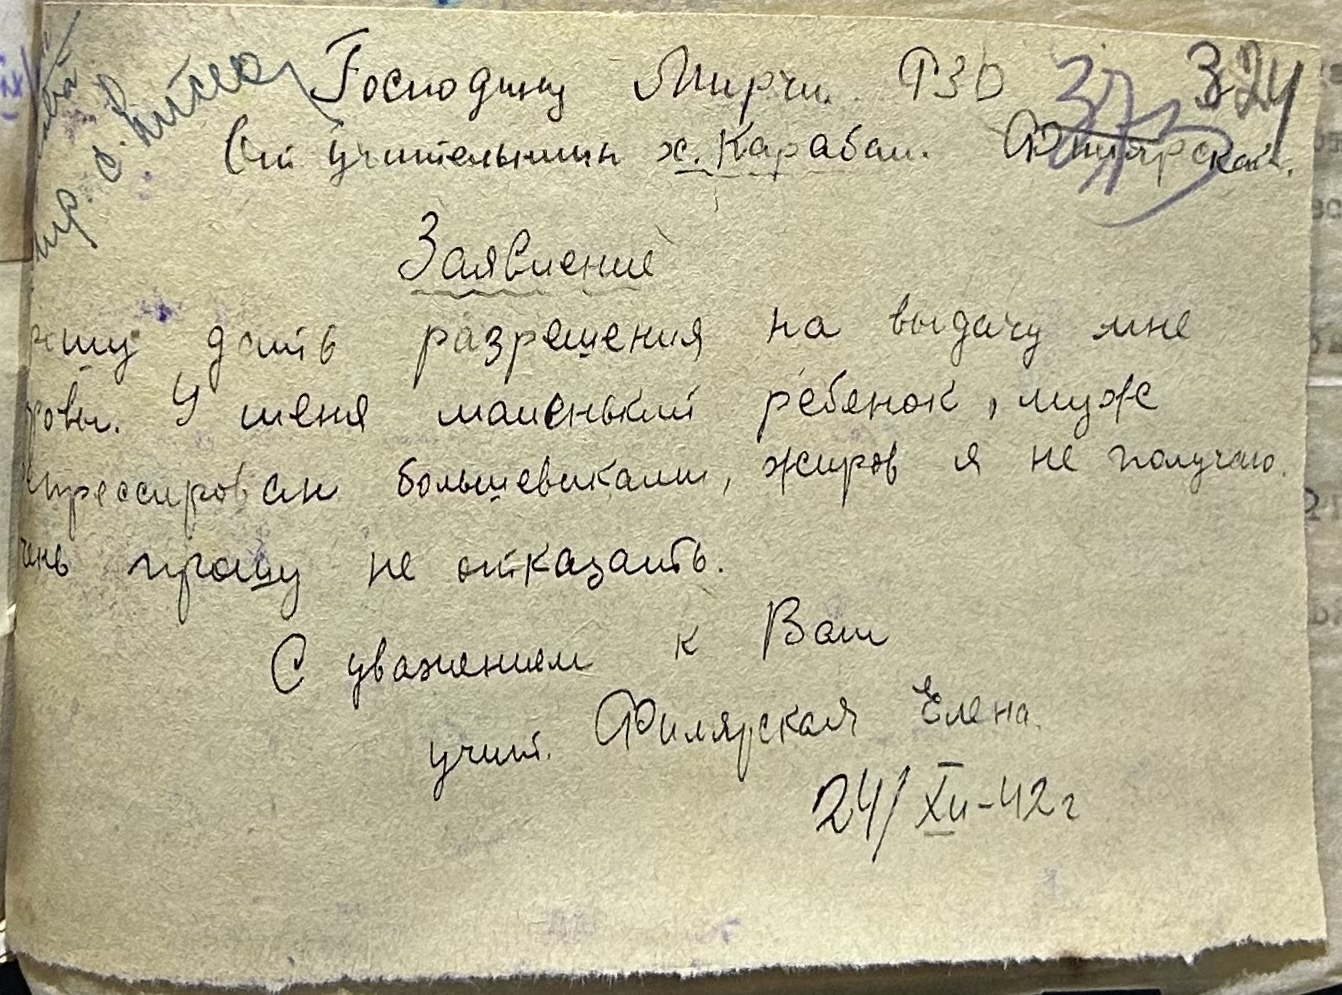 324
Господину Мирчи. РЗО
От учительницы х. Карабаш. Филярской.
Заявление
рошу дать разрешения на выдачу мне
ровы. У меня маленький ребенок, муж
репрессирован большевиками, жиров я не получаю.
чень прошу не отказать.
С уважением к Вам
учит. Филярская Елена
24/XII-42г